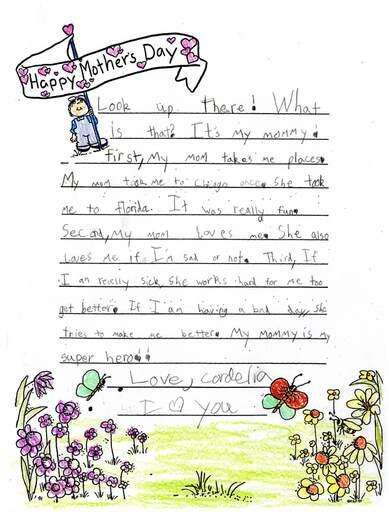 Happy Mother's Day
Look up there! What
is that? It's My mommy!
first, My mom takes me places.
My mom took me to chicago once. She took
me to florida. It was really fun.
Second, My mom Loves me. She also
Loves me if I'm sad or not. Third, If
I am really sick, she works hard for me too
get better. If I am having a bad day, she
tries to make me better. My MoMMy is my
super hero!!
Love, cordelia
I ♡ you